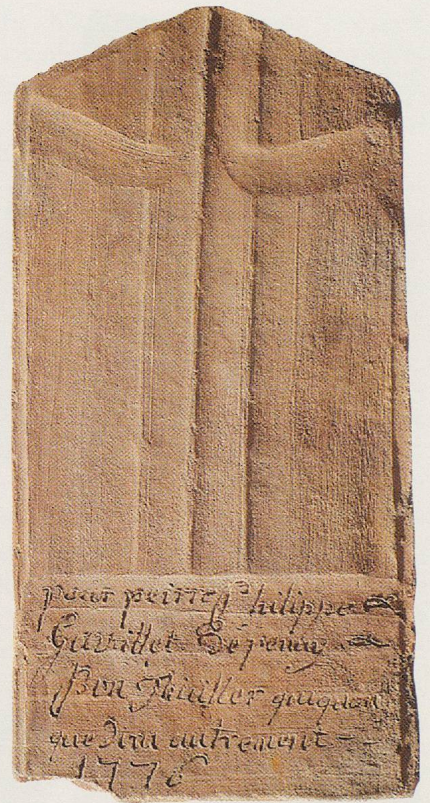 pour peirre philippe
Gavillet Dépeney
Bon quiquon
que Dira autrement
1776